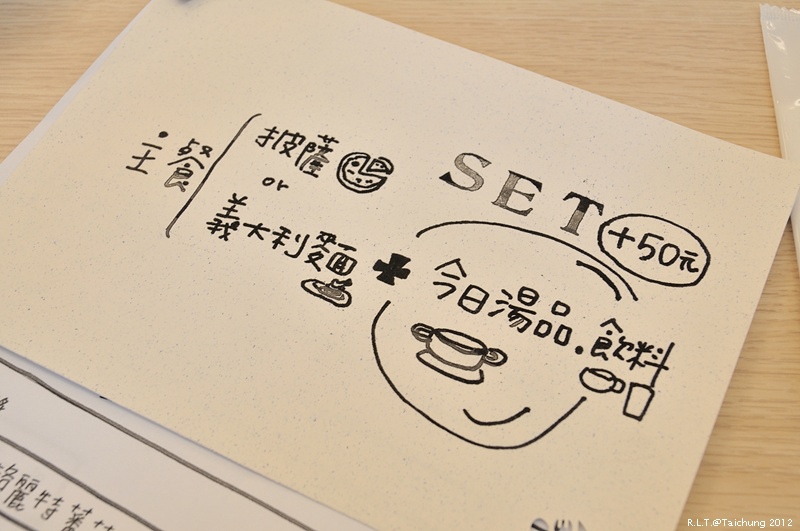 SET
+50元
主餐
披薩
or
義大利麵
+
今日湯品.飲料
麗特蕃
R.L.T.@Taichung 2012